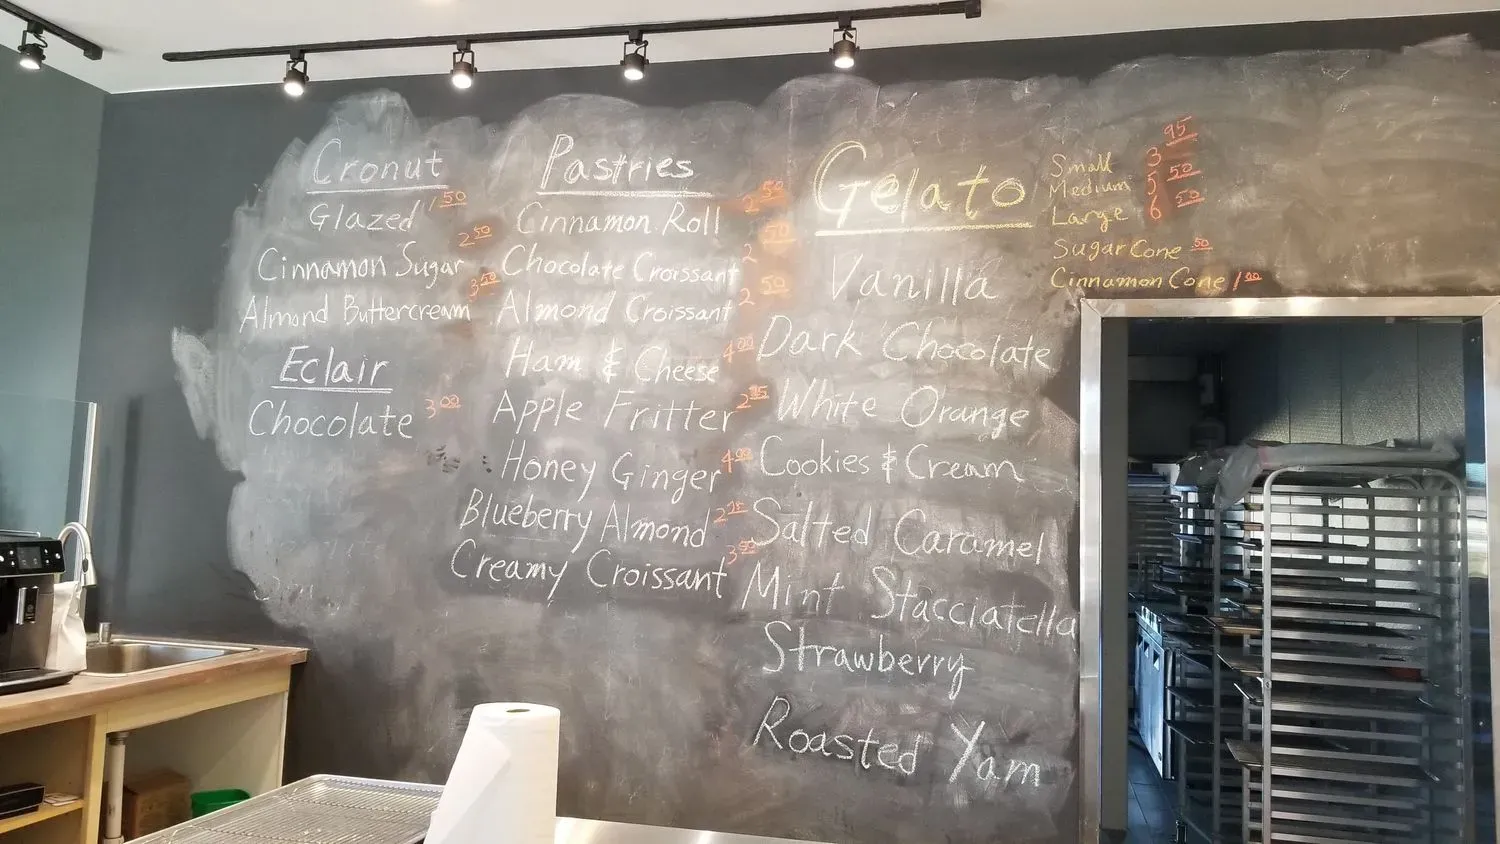 Cronut
Glazed 1 50
Cinnamon Sugar 2 50
Almond Buttercream 3 50
Eclair
Chocolate 3 00
Pastries
Cinnamon Roll 2 50
Chocolate Croissant 2 50
Almond Croissant 2 50
Ham & Cheese 4 00
Apple Fritter 2 75
Honey Ginger 4 00
Blueberry Almond 2 75
Creamy Croissant 3 50
Gelato
Small 3 95
Medium 5 50
Large 6 50
Sugar Cone 50
Cinnamon Cone 1 00
Vanilla
Dark Chocolate
White Orange
Cookies & Cream
Salted Caramel
Mint Stacciatella
Strawberry
Roasted Yam